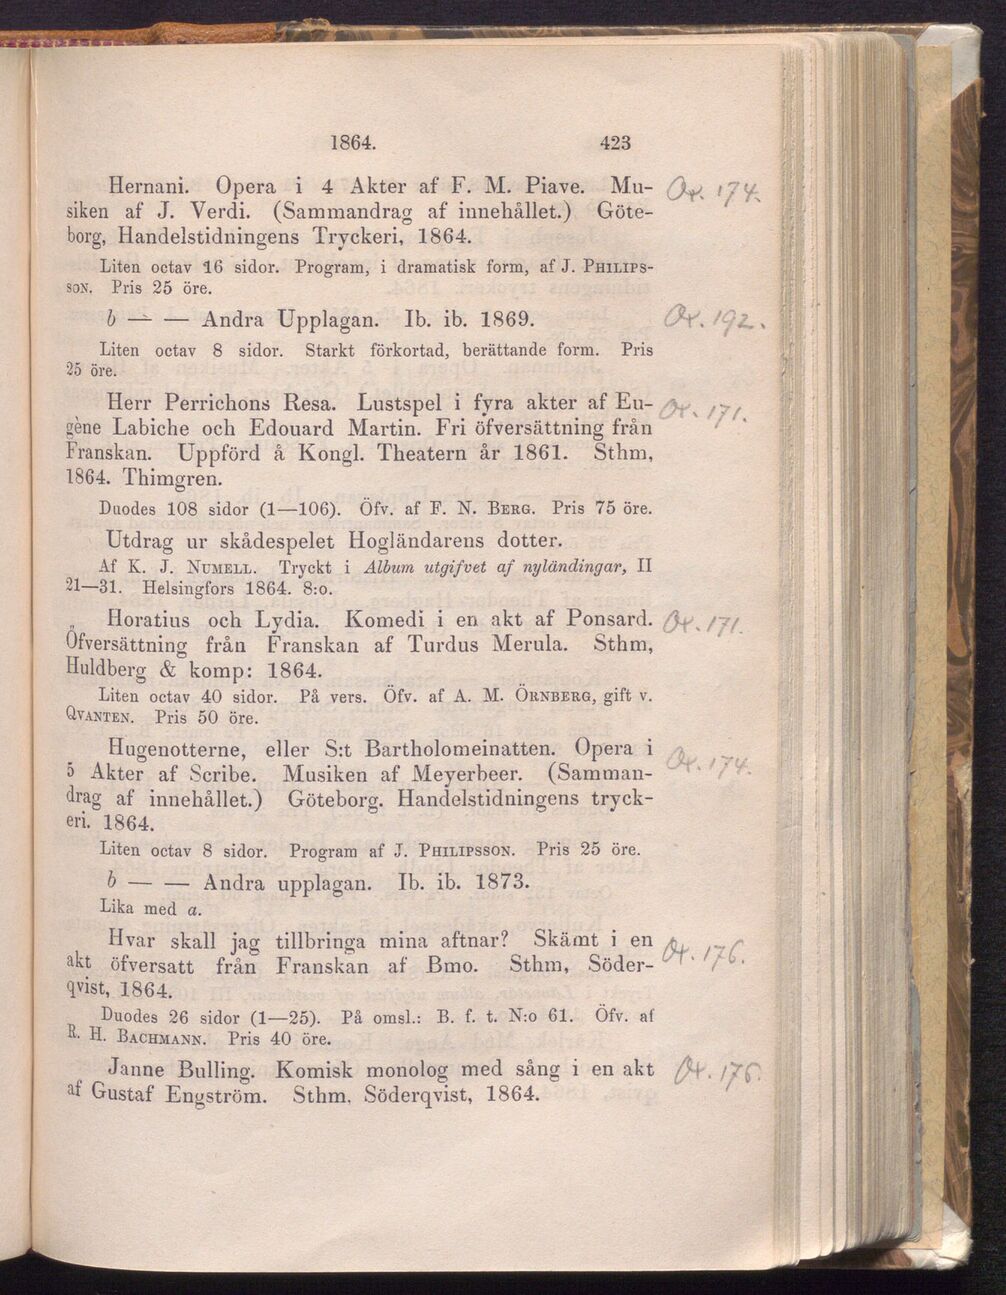 1864. 423
Hernani. Opera i 4 Akter af F. M. Piave. Mu- Ox. 174.
siken af J. Verdi. (Sammandrag af innehållet.) Göte-
borg, Handelstidningens Tryckeri, 1864.
Liten octav 16 sidor. Program, i dramatisk form, af J. PHILIPS-
SON. Pris 25 öre.
b — — Andra Upplagan. Ib. ib. 1869. Ox. 192.
Liten octav 8 sidor. Starkt förkortad, berättande form. Pris
25 öre.
Herr Perrichons Resa. Lustspel i fyra akter af Eu- Ox. 171.
gène Labiche och Edouard Martin. Fri öfversättning från
Franskan. Uppförd å Kongl. Theatern år 1861. Sthm,
1864. Thimgren.
Duodes 108 sidor (1—106). Öfv. af F. N. BERG. Pris 75 öre.
Utdrag ur skådespelet Högländarens dotter.
Af K. J. NUMELL. Tryckt i Album utgifvet af nyländingar, II
21—31. Helsingfors 1864. 8:o.
Horatius och Lydia. Komedi i en akt af Ponsard. Ox. 171.
Öfversättning från Franskan af Turdus Merula. Sthm,
Huldberg & komp: 1864.
Liten octav 40 sidor. På vers. Öfv. af A. M. ÖRNBERG, gift v.
QVANTEN. Pris 50 öre.
Hugenotterne, eller S:t Bartholomeinatten. Opera i Ox. 174.
5 Akter af Scribe. Musiken af Meyerbeer. (Samman-
drag af innehållet.) Göteborg. Handelstidningens tryck-
eri. 1864.
Liten octav 8 sidor. Program af J. PHILIPSSON. Pris 25 öre.
b — — Andra upplagan. Ib. ib. 1873.
Lika med a.
Hvar skall jag tillbringa mina aftnar? Skämt i en Ox. 176.
akt öfversatt från Franskan af Bmo. Sthm, Söder-
qvist, 1864.
Duodes 26 sidor (1—25). På omsl.: B. f. t. N:o 61. Öfv. af
R. H. BACHMANN. Pris 40 öre.
Janne Bulling. Komisk monolog med sång i en akt Ox. 176.
af Gustaf Engström. Sthm, Söderqvist, 1864.